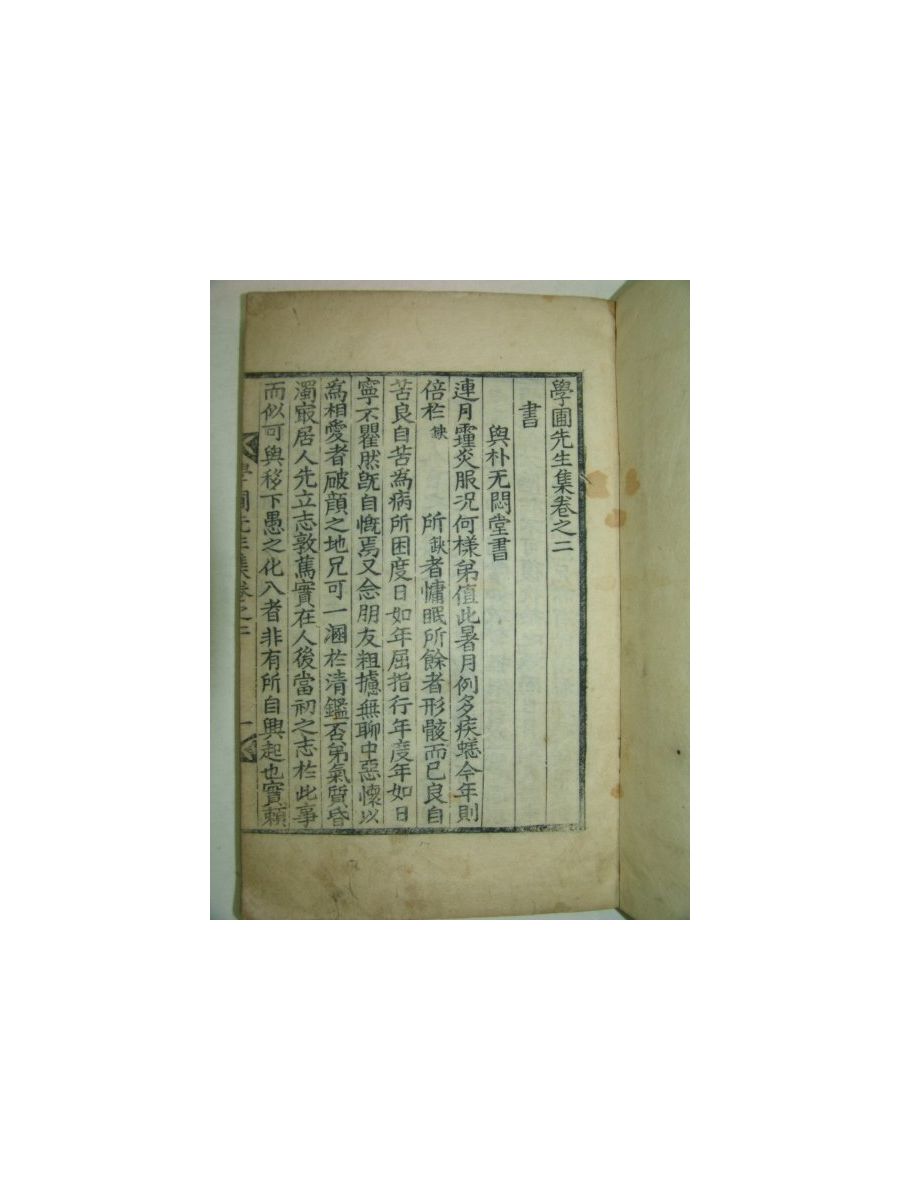 學圃先生集卷之二
書
與朴无悶堂書
連月霾炎服况何樣弟值此暑月例多疾恙今年則
倍於缺 所缺者慵眠所餘者形骸而已良自
苦良自苦為病所困度日如年屈指行年度年如日
寧不瞿然旣自慨焉又念朋友粗攄無聊中惡懷以
為相愛者破顔之地兄可一溷於清鑑否弟氣質昏
濁㝡居人先立志敦篤實在人後當初之志於此事
而似可與移下愚之化入者非有所自興起也實頼
學圃先生集卷之二 一